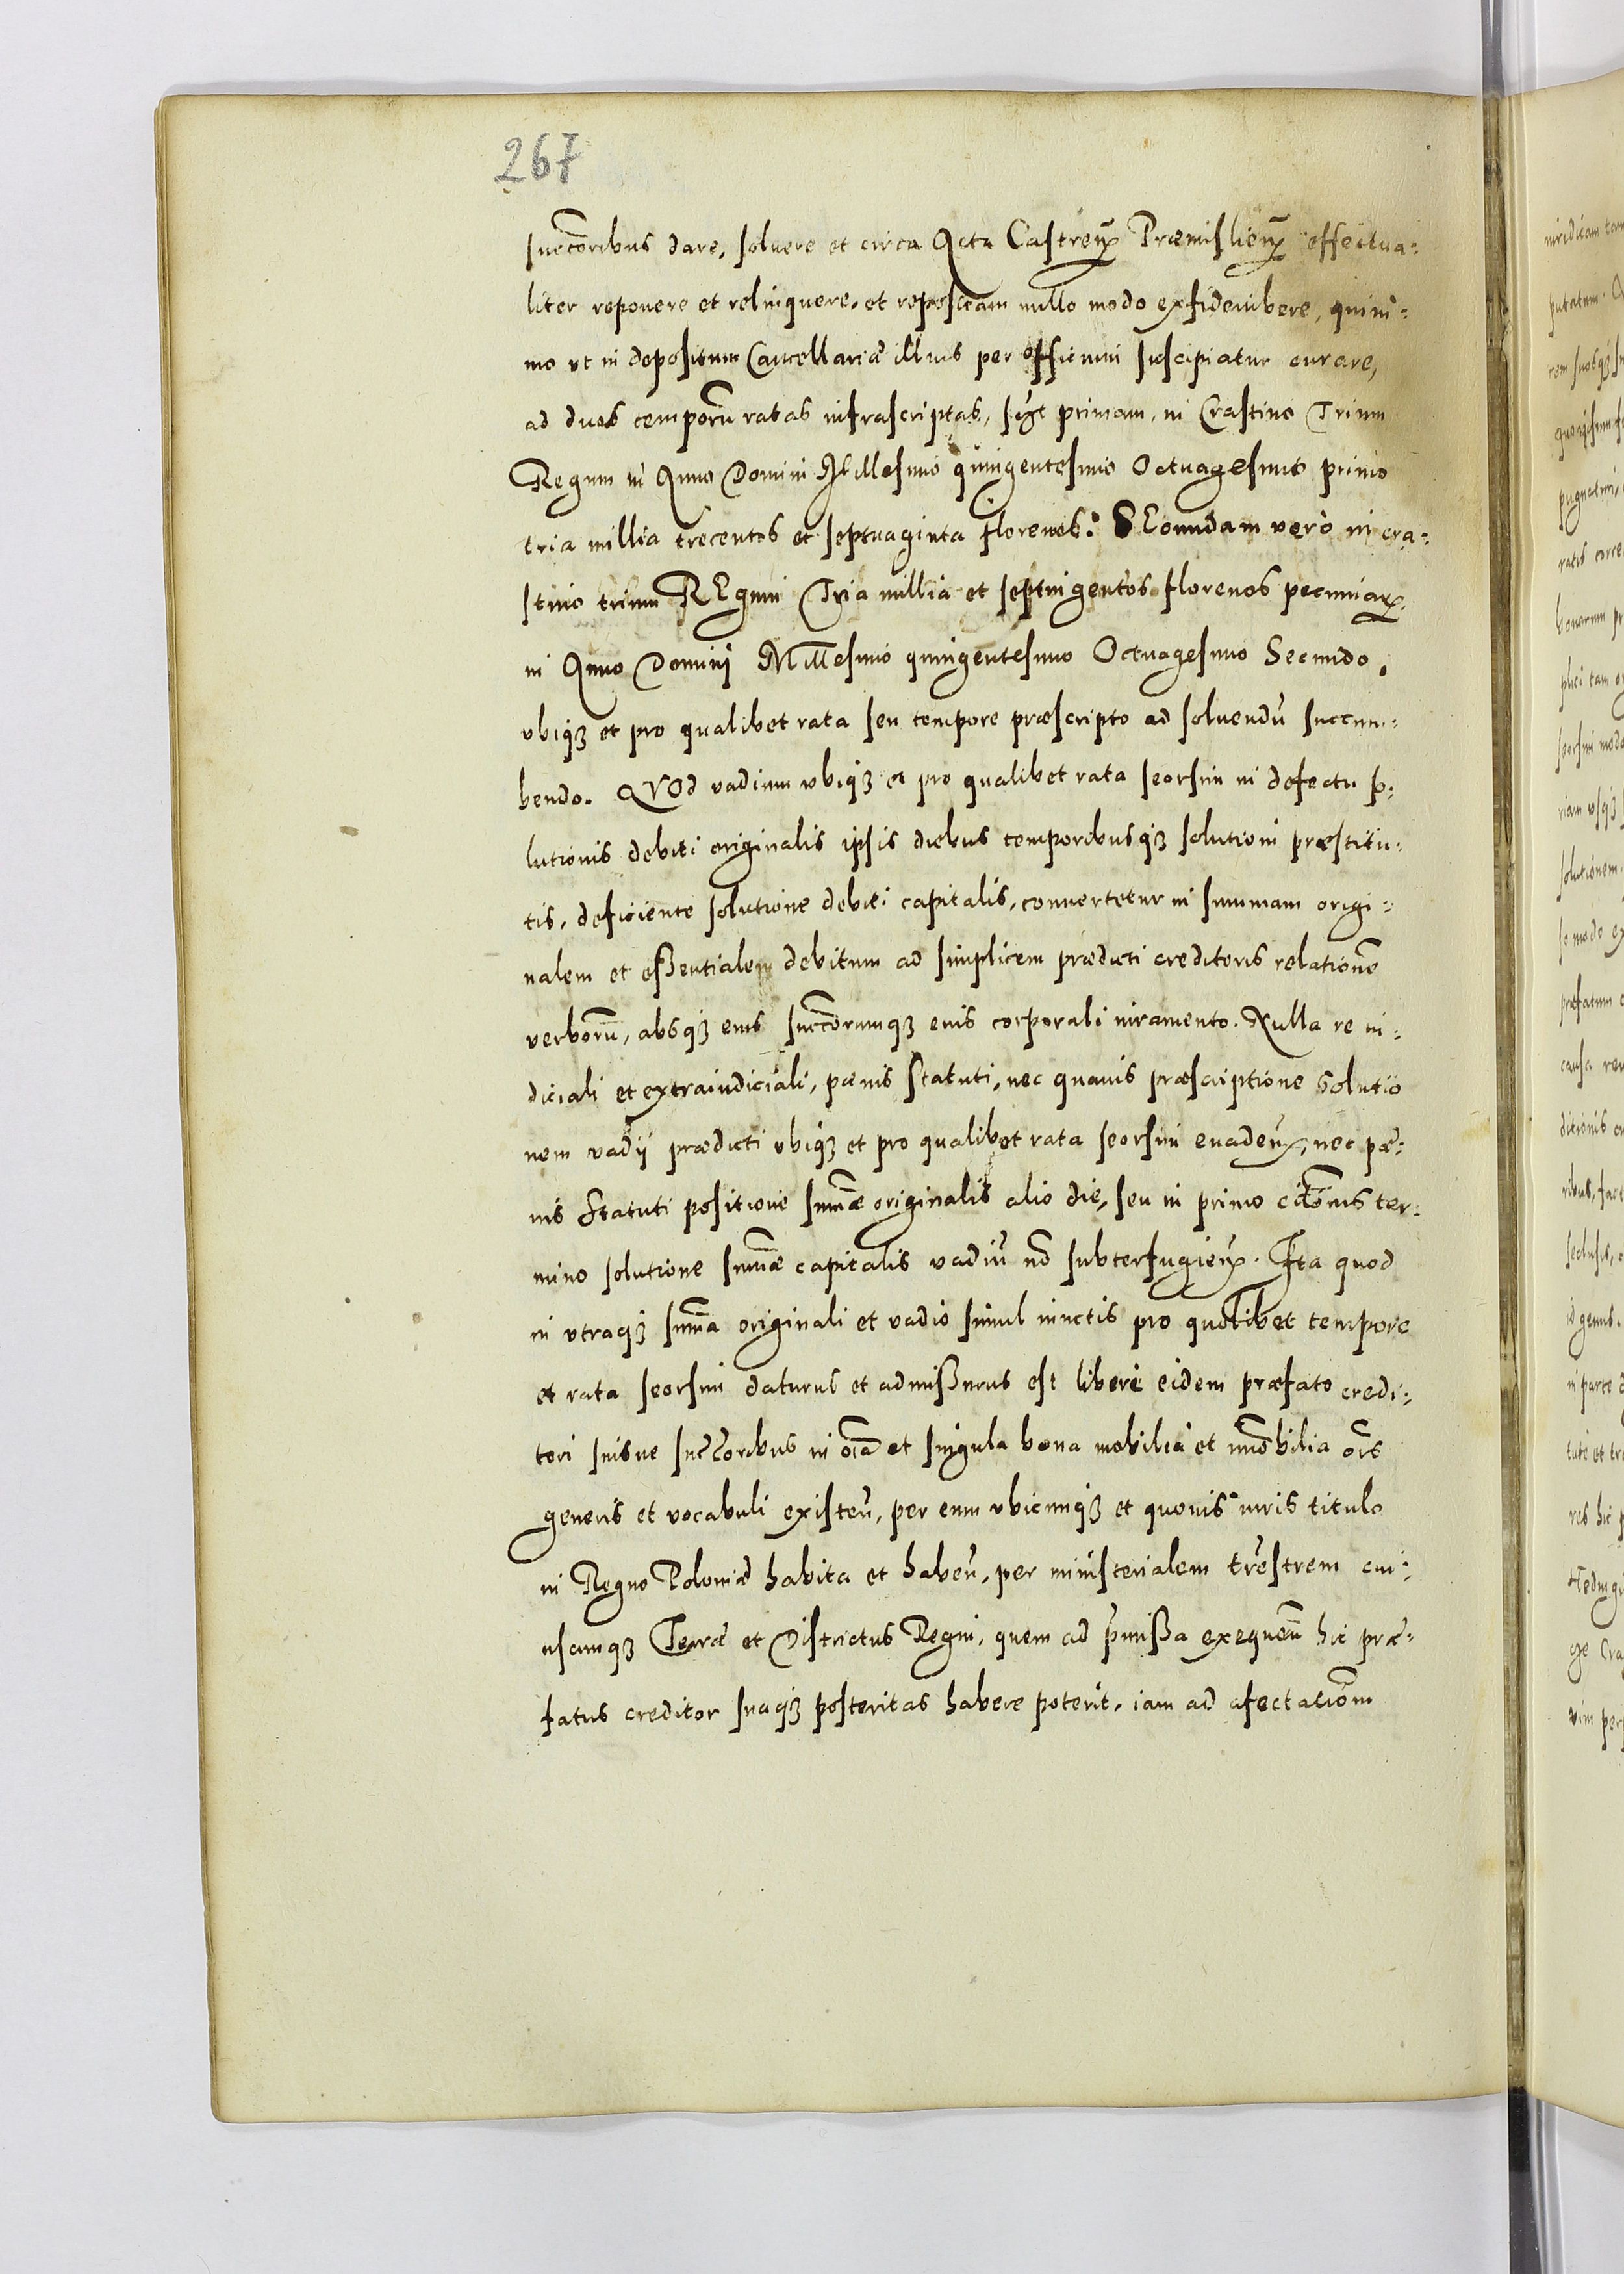 267
succoribus dare, soluere et circa Acta Castren. Præmislien. effectua-
liter reponere et relinquere, et repositam nullo modo exfidenibere, quini-
mo vt in depositum Cancellariæ illius per officium suscipiatur curare,
ad duos temporū ratas infrascriptas, scꝫt primam, in Crastino Trium
Regum in Anno Domini Millesimo quingentesimo Octuagesimo primo
tria millia trecentos et septuaginta florenos. SEcundam verò in cra-
stino trium REgum Tria millia et septingentos florenos pecuniar.
in Anno Dominj Millesimo quingentesimo Octuagesimo Secundo,
vbiqꝫ et pro qualibet rata seu tempore præscripto ad soluendū succum-
bendo. QVOd vadium vbiqꝫ et pro qualibet rata seorsim in defectu so-
lutionis debiti originalis ipsis diebus temporibusqꝫ solutioni præstitu-
tis, deficiente solutione debiti capitalis, conuertetur in summam origi-
nalem et essentialem debitum ad simplicem prædicti creditoris relationē
verborū, absqꝫ eius succorumqꝫ eius corporali iuramento. Nulla re iu-
diciali et extraiudiciali, pænis statuti, nec quauis præscriptione solutio
nem vadij prædicti vbiqꝫ et pro qualibet rata seorsim euaden., nec pæ-
nis statuti positione summæ originalis alio die, seu in primo citōnis ter-
mino solutione summæ capitalis vadiū nō subterfugien. Ita quod
in vtraqꝫ summa originali et vadio simul iunctis pro quolibet tempore
et rata seorsim daturus et admissurus est liberè eidem præfato credi-
tori suisue succoribus in oīa et singula bona mobilia et immobilia oīs
generis et vocabuli existeñ, per eum vbicunqꝫ et quouis iuris titulo
in Regno Poloniæ habita et habeñ, per ministerialem trēstrem cui-
usamqꝫ Terræ et Districtus Regni, quem ad pmissa exequeñ hic præ-
fatus creditor suaqꝫ posteritas habere poterit, iam ad afectatiōm